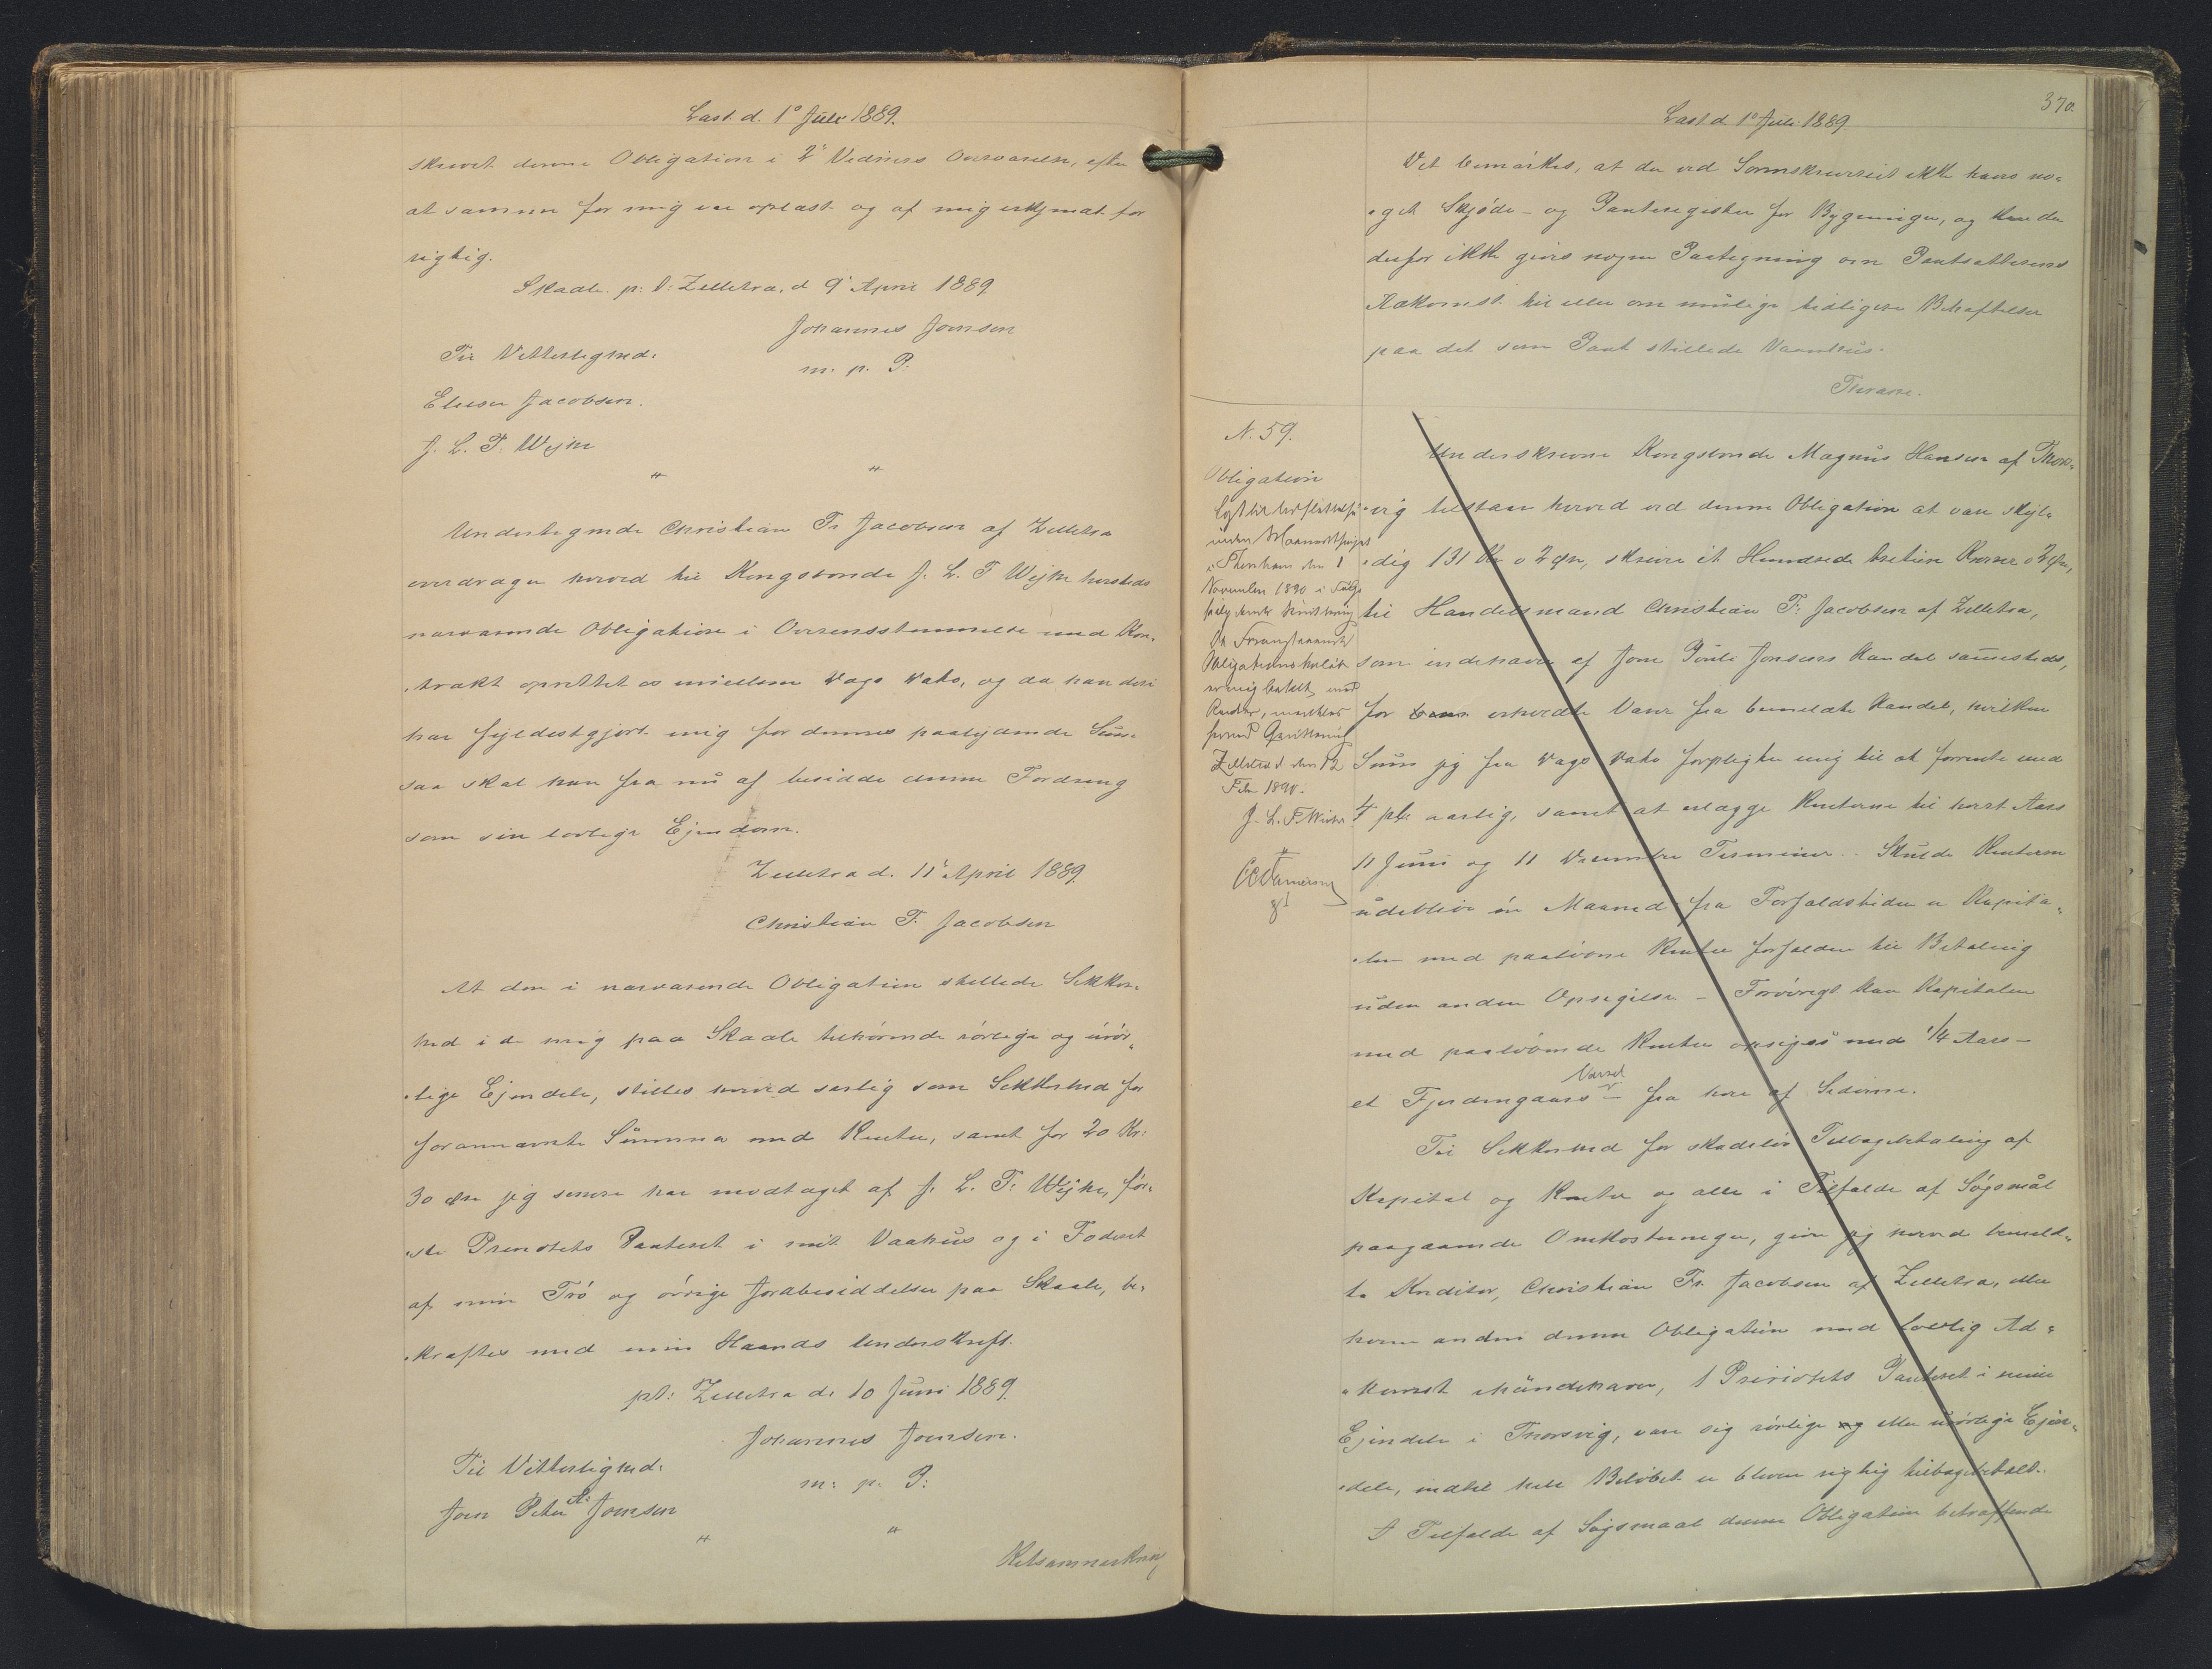 Læst d. 1° Juli 1889.
skrevet denne Obligation i 2de Vidners Overværelse, efter
at samme for mig var oplæst og af mig erkjendt for
rigtig.
Skaale p. t: Zelletræ, d 9' April 1889
Johannes Joensen
m. p. P.
Til Vitterlighed:
Elieser Jacobsen.
J. L. P. Wejhe
Undertegnede Christian Fr Jacobsen af Zelletræ
overdrager herved til Kongsbonde J. L. F Wejhe hersteds
nærværende Obligation i Overensstemmelse med Kon-
trakt oprettet os imellem Dags Dato, og da han deri
har fyldestgjort mig for dennes paalydende Sum
saa skal han fra nu af besidde denne Fordring
som sin lovlige Ejendom.
Zelletræ d. 11' April 1889.
Christian F. Jacobsen
At den i nærværende Obligation stillede Sikker-
hed i de mig paa Skaale tilhørende rørlige og urør-
lige Ejendele, stilles herved særlig som Sikkerhed for
forannævnte Summa med Renter, samt for 20 Kr:
30 Øre jeg senere har modtaget af J. L. F. Wejhe, før-
ste Prioritets Panteret i mit Vaahus og i Foderet
af min Trø og øvrige Jordbesiddelser paa Skaale, be-
kræftes med min Haands Underskrift.
pt: Zelletræ d. 10 Juni 1889.
Johannes Joensen.
m: p. P:
Til Vitterlighed:
Joen Peter Joensen
Retsanmærkning
370.
Læst d. 1° Juli 1889
Det bemærkes, at der ved Sorenskriveriet ikke haves no-
get Skjøde- og Panteregister for Bygninger, og kan der
derfor ikke gives nogen Paategning om Pantsætterens
Adkomst til eller om mulige tidligere Behæftelser
paa det som Pant stillede Vaanhus.
N. 59.
Obligation
Lyst til Udslettelse
inden Maanedstinget
i Thorshavn den 1
November 1890 i Følge
følgende Kvittering
Forannævnte
Obligations beløb
er mig betalt med
Renter, meddeles
herved Qvittering
Zelletræ d den 12
Feb 1890.
Underskrevne Kongsbonde Magnus Hansen af Thors-
vig tilstaar herved ved denne Obligation at være skyl-
dig 131 Kr o 2 Øre, skrive et Hundrede tretien Kroner o 2 Øre,
til Handelsmand Christian F. Jacobsen af Zelletræ,
som indehaver af Joen Pouli Jonsens Handel sammesteds,
for erholdte Varer fra bemeldte Handel, hvilken
Sum jeg fra Dags Dato forpligter mig til at forrente med
4 pct aarlig, samt at erlægge Renterne til hvert Aars
11 Juni og 11 December Terminer. - Skulde Renterne
udeblive én Maaned fra Forfaldstiden er Kapita-
len med paaløbne Renter forfalden til Betaling
uden anden Opsigelse - Forøvrigt kan Kapitalen
med paaløbende Renter opsiges med 1/4 Aars -
et Fjerdingaars Varsel fra hver af Siderne.
Til Sikkerhed for skadesløs Tilbagebetaling af
Kapital og Renter og alle i Tilfælde af Søgsmål
paagaaende Omkostninger, giver jeg herved bemeld-
te Kreditor, Christian Fr. Jacobsen af Zelletræ, eller
hvem anden denne Obligation med lovlig Ad-
komst ihændehaver, 1 Prioritets Panteret i mine
Ejendele i Thorsvig, være sig rørlige og eller urørlige Ejen-
dele, indtil hele Beløbet er bleven rigtig tilbagebetalt.
I Tilfælde af Søgsmaal denne Obligation betræffende